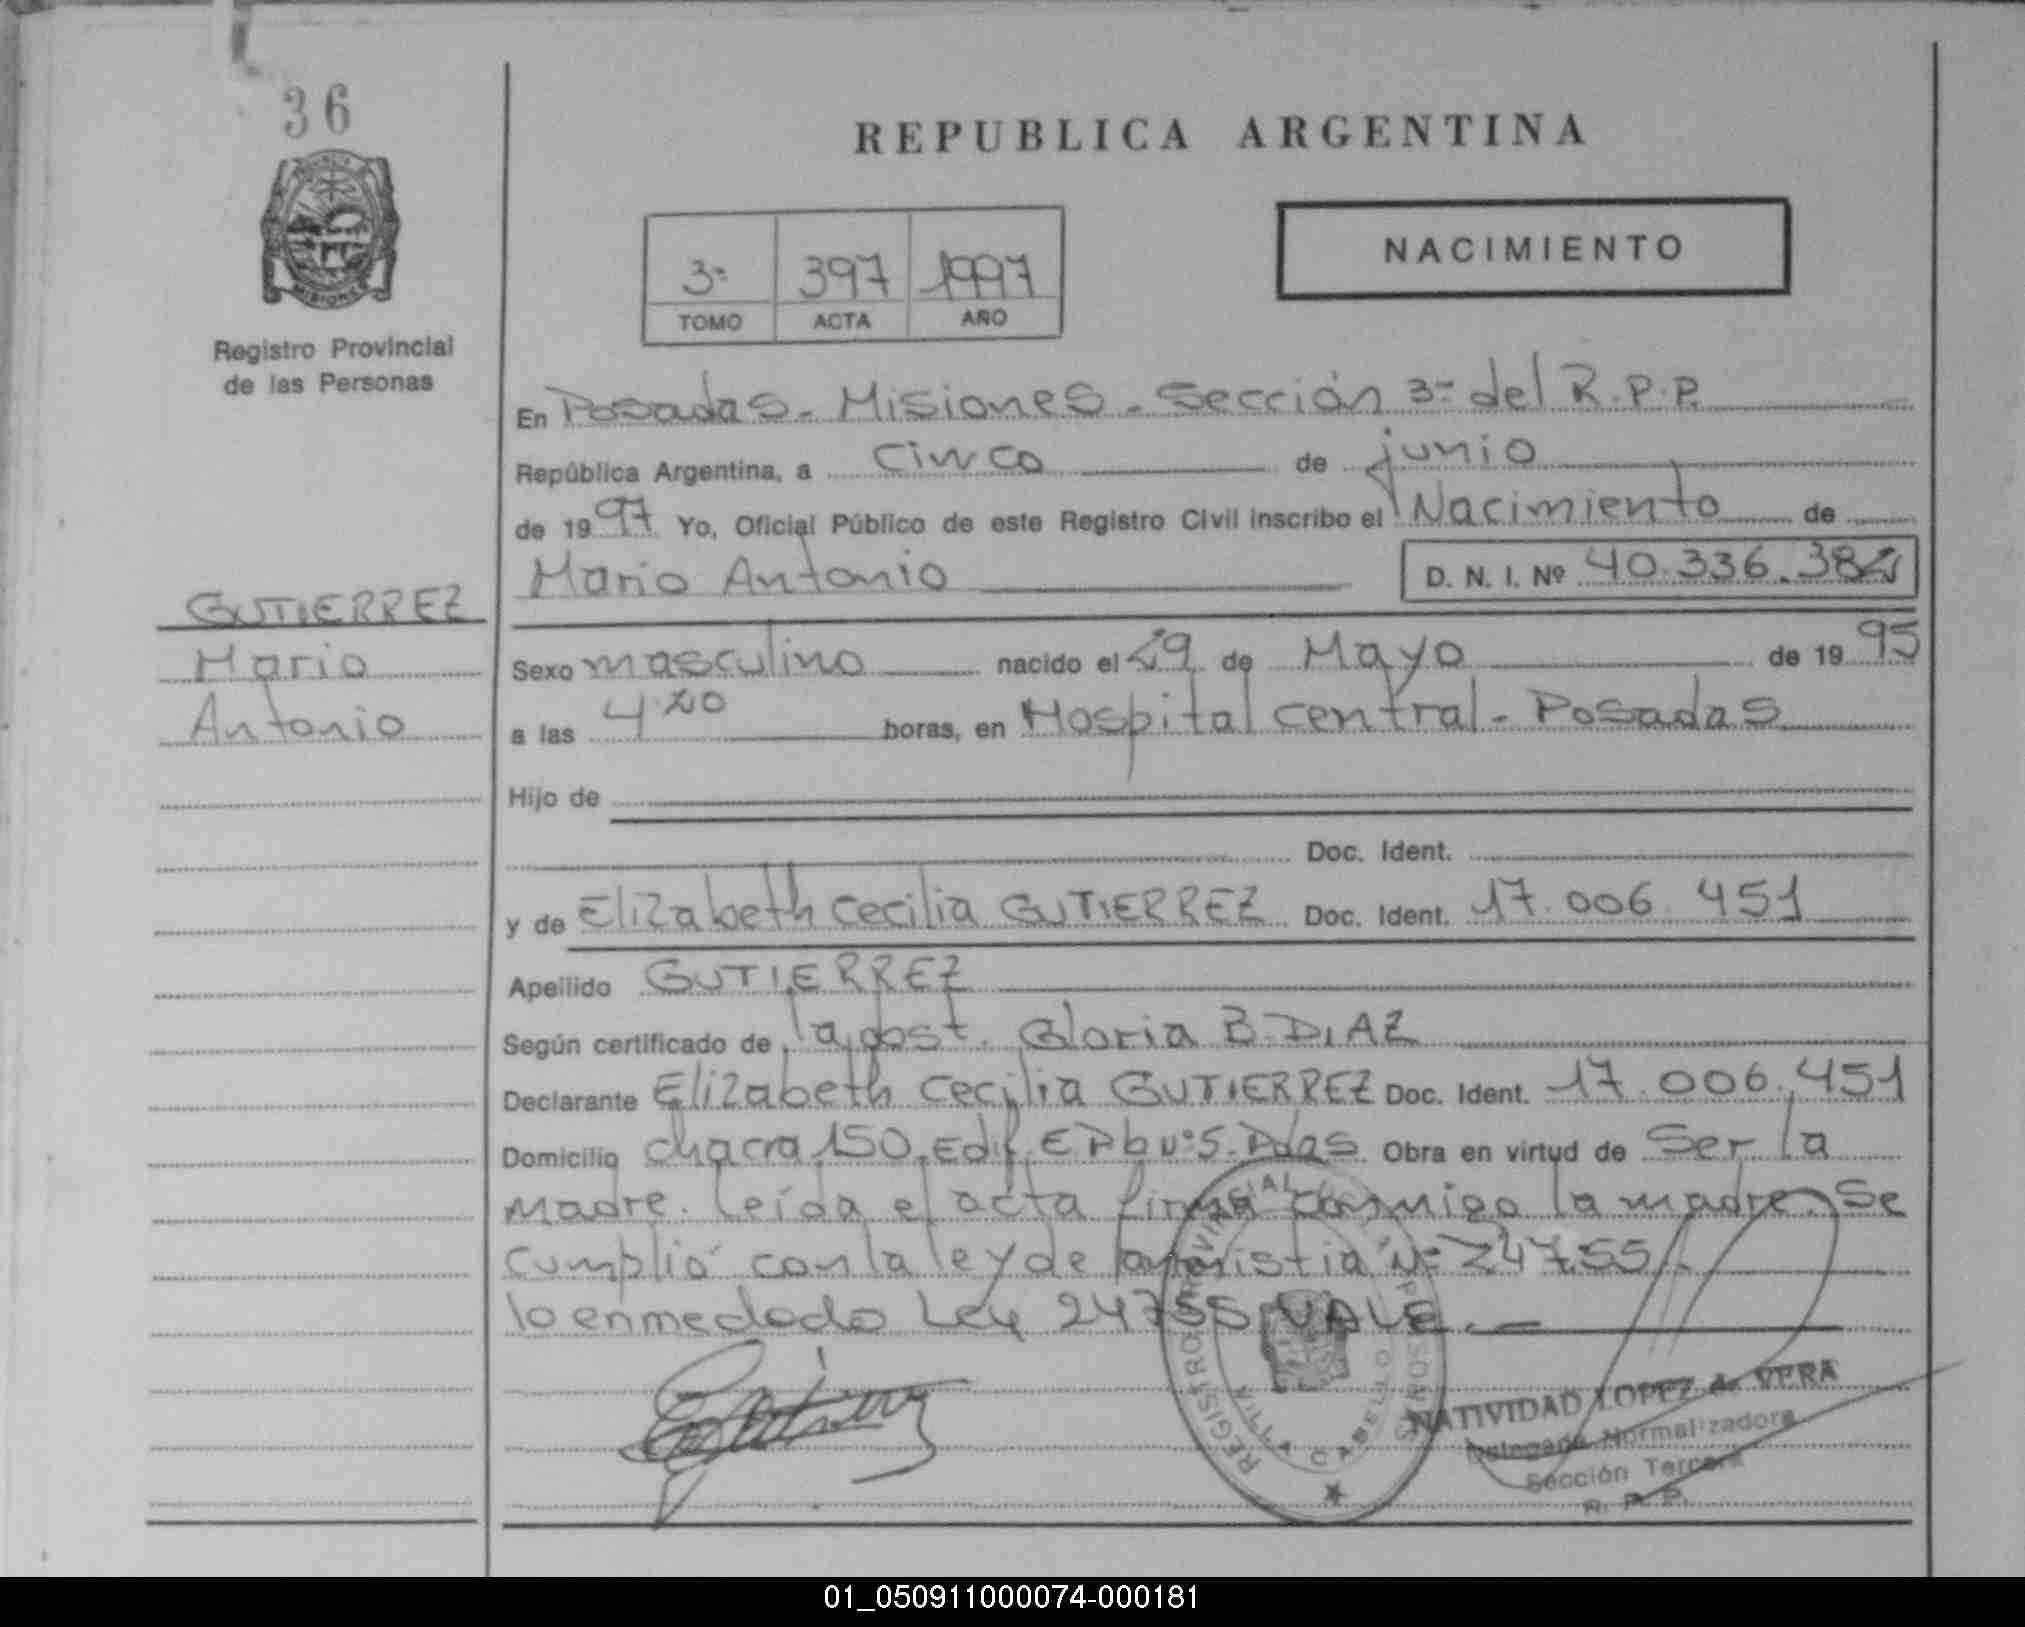 36
MISIONES
Registro Provincial
de las Personas
REPUBLICA ARGENTINA
3ª 397 1997
TOMO ACTA AÑO
NACIMIENTO
En Posadas - Misiones - Sección 3ª del R.P.P.
República Argentina, a cinco de junio
de 1997 Yo, Oficial Público de este Registro Civil inscribo el Nacimiento de
Mario Antonio D. N. I. Nº 40.336.382
GUTIERREZ
Mario
Antonio
Sexo masculino nacido el 29 de Mayo de 1995
a las 4.20 horas, en Hospital central - Posadas
Hijo de
Doc. Ident.
y de Elizabeth Cecilia GUTIERREZ Doc. Ident. 17.006.451
Apellido GUTIERREZ
Según certificado de la obst. Gloria B. DIAZ
Declarante Elizabeth Cecilia GUTIERREZ Doc. Ident. 17.006.451
Domicilio chacra 150. Edif. E Pb nº 5. Pdas Obra en virtud de Ser la
madre. Leída el acta firma conmigo la madre. Se
cumplió con la ley de amnistia Nº 24755
lo enmedado Ley 24755 VALE.
REGISTRO PROVINCIAL
CABELLO
NATIVIDAD LOPEZ de VERA
Delegada Normalizadora
Sección Tercera
R. P. P.
01_050911000074-000181